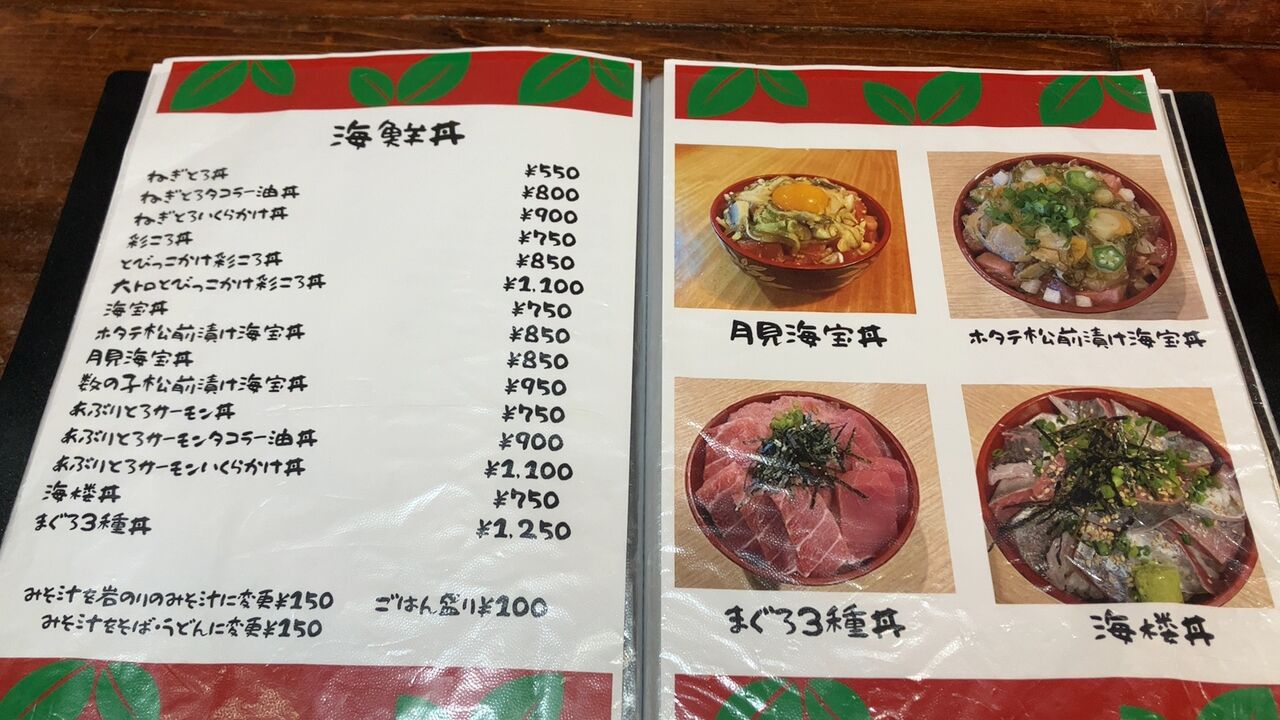 海鮮丼
ねぎとろ丼 ¥550
ねぎとろタコラー油丼 ¥800
ねぎとろいくらかけ丼 ¥900
彩ころ丼 ¥750
とびっこかけ彩ころ丼 ¥850
大トロとびっこかけ彩ころ丼 ¥1,100
海宝丼 ¥750
ホタテ松前漬け海宝丼 ¥850
月見海宝丼 ¥850
数の子松前漬け海宝丼 ¥950
あぶりとろサーモン丼 ¥750
あぶりとろサーモンタコラー油丼 ¥900
あぶりとろサーモンいくらかけ丼 ¥1,100
海桜丼 ¥750
まぐろ3種丼 ¥1,250
みそ汁を岩のりのみそ汁に変更¥150 ごはん盛り¥100
みそ汁をそば・うどんに変更¥150
月見海宝丼
ホタテ松前漬け海宝丼
まぐろ3種丼
海桜丼